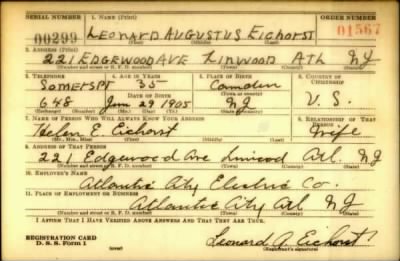 SERIAL NUMBER 1. NAME (Print) ORDER NUMBER
00299 LEONARD AUGUSTUS EICHORST 01567
(First) (Middle) (Last)
2. ADDRESS (Print)
221 EDGEWOOD AVE LINWOOD ATL NJ
(Number and street or R. F. D. number) (Town) (County) (State)
3. TELEPHONE 4. AGE IN YEARS 5. PLACE OF BIRTH 6. COUNTRY OF CITIZENSHIP
SOMERSPT 35 Camden
DATE OF BIRTH (Town or county)
648 Jan 29 1905 NJ U. S.
(Exchange) (Number) (Mo.) (Day) (Yr.) (State or country)
7. NAME OF PERSON WHO WILL ALWAYS KNOW YOUR ADDRESS 8. RELATIONSHIP OF THAT PERSON
Helen E. Eichorst Wife
(Mr., Mrs., Miss) (First) (Middle) (Last)
9. ADDRESS OF THAT PERSON
221 Edgewood Ave Linwood Atl. NJ
(Number and street or R. F. D. number) (Town) (County) (State)
10. EMPLOYER'S NAME
Atlantic City Electric Co.
11. PLACE OF EMPLOYMENT OR BUSINESS
Atlantic City Atl NJ
(Number and street or R. F. D. number) (Town) (County) (State)
I AFFIRM THAT I HAVE VERIFIED ABOVE ANSWERS AND THAT THEY ARE TRUE.
REGISTRATION CARD
D. S. S. Form 1 (over) Leonard A. Eichorst
(Registrant's signature)